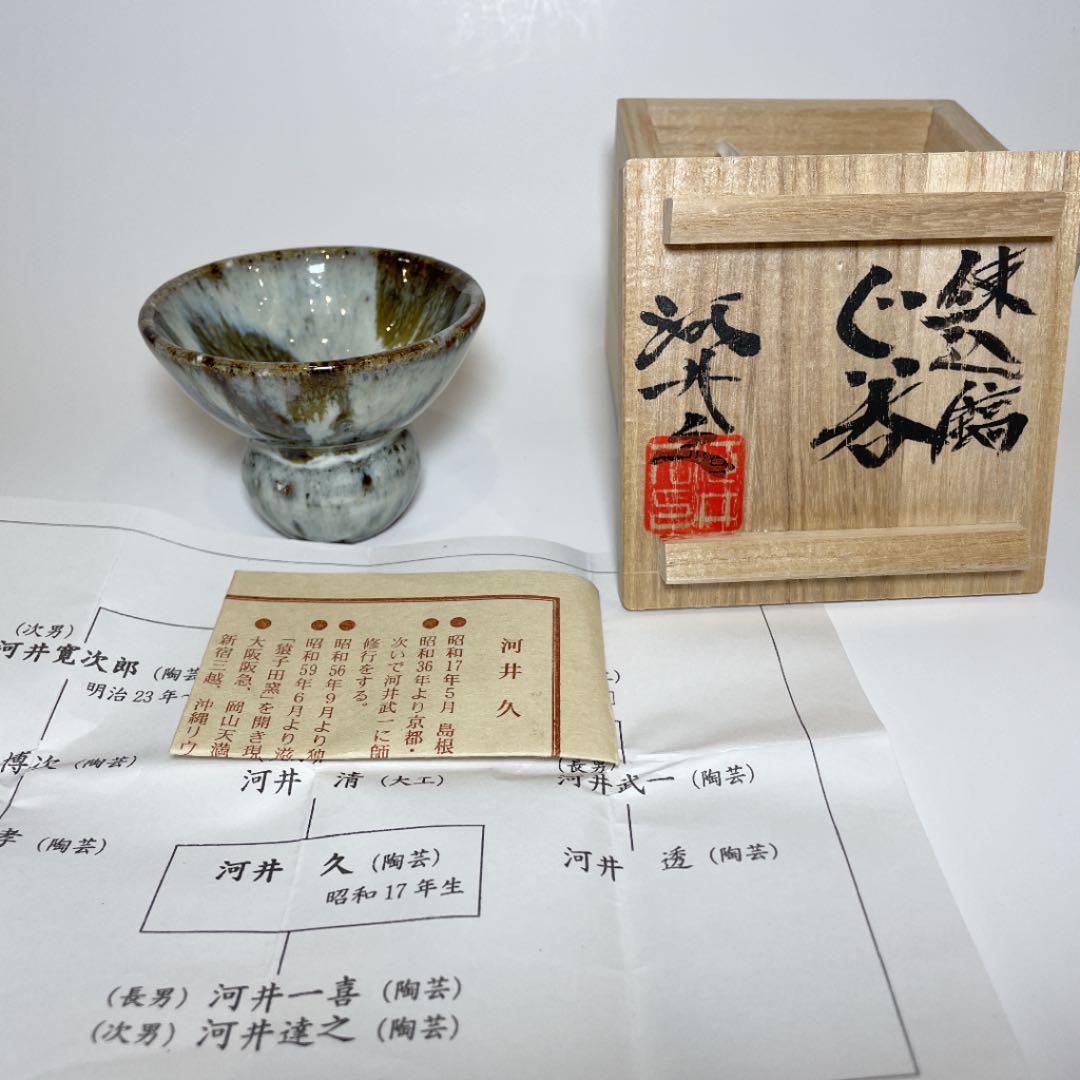 練込鎬
ぐい呑
河井久
河井久
昭和17年5月 島根
昭和36年より京都・
次いで河井武一に師
修行をする。
昭和56年9月より独
昭和59年6月より滋
「猿子田窯」を開き現
大阪阪急、岡山天満
新宿三越、沖縄リウ
(次男)
河井寛次郎 (陶芸
明治23年
博次 (陶芸)
孝 (陶芸)
河井 清 (大工)
(長男)
河井武一 (陶芸)
河井 透 (陶芸)
河井 久 (陶芸)
昭和17年生
(長男) 河井一喜 (陶芸)
(次男) 河井達之 (陶芸)